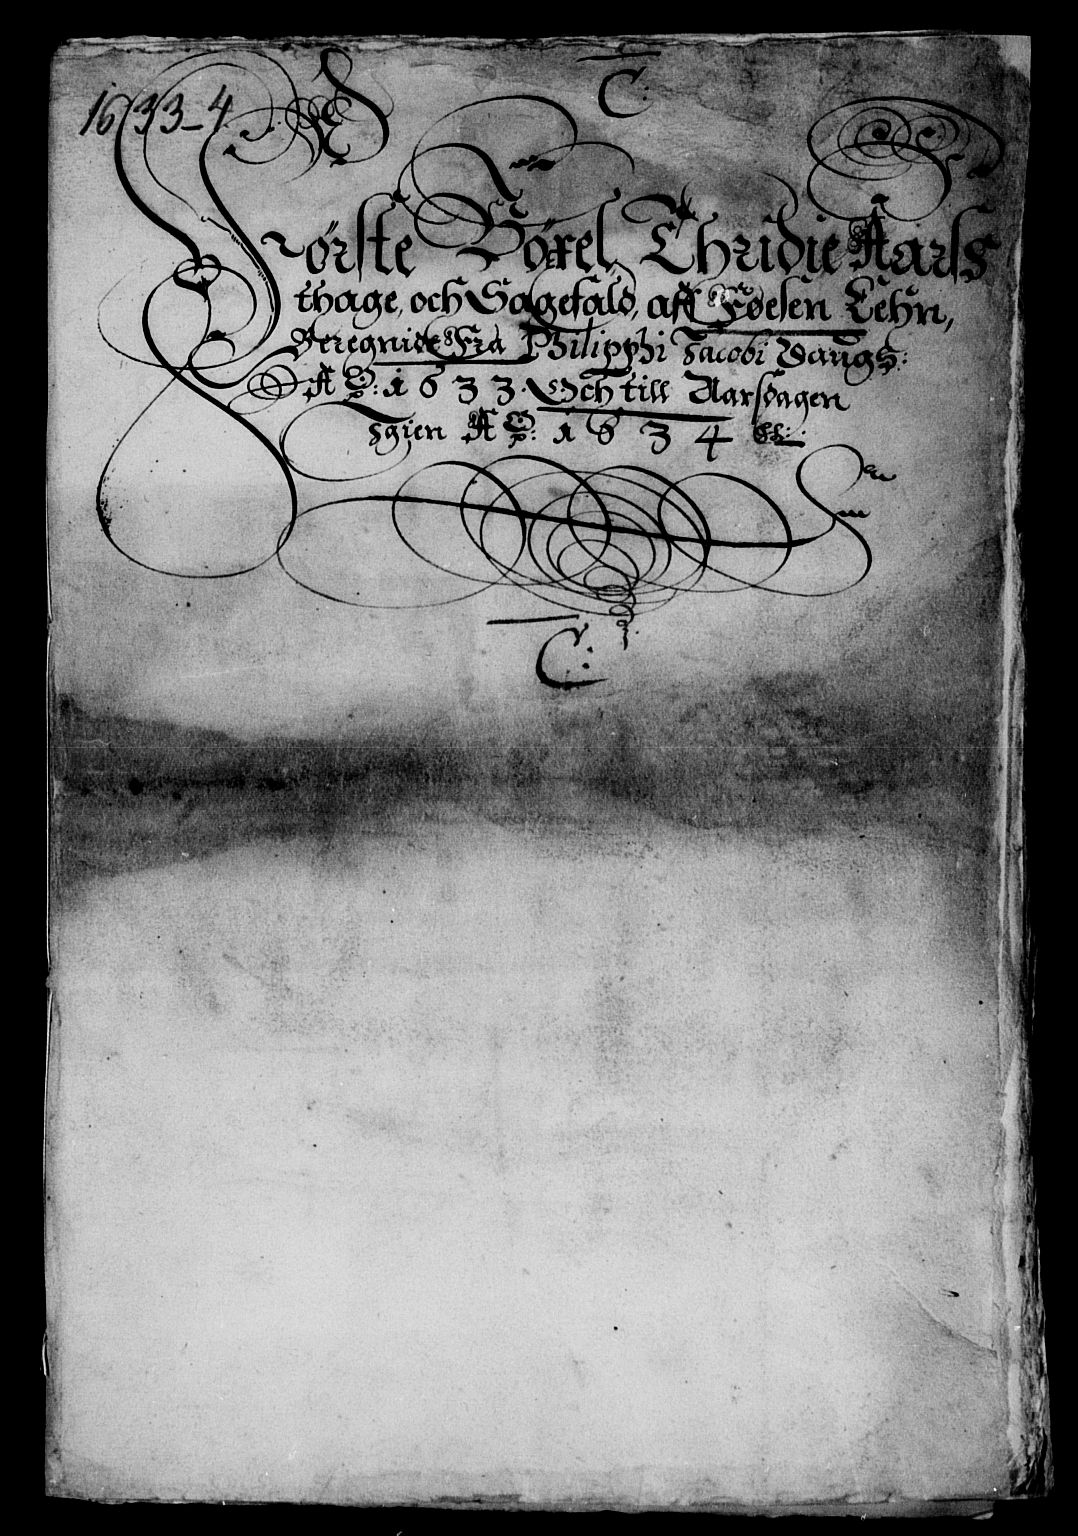 C:
1633-4
Første Böxel, Thridie Aarss
thage, och Sagefald, aff Føesen Lehn,
Beregnide Fra Philipphi Jacobi Daugs:
A°: 1633. Och till Aarsdagen
Igien A°: 1634 &c:
C: